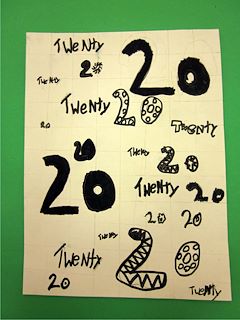 Twenty
20
20
Twenty
Twenty 20
20
Twenty
20
Twenty
20
20
Twenty 20
20 20
Twenty
20
Twenty
20
Twenty